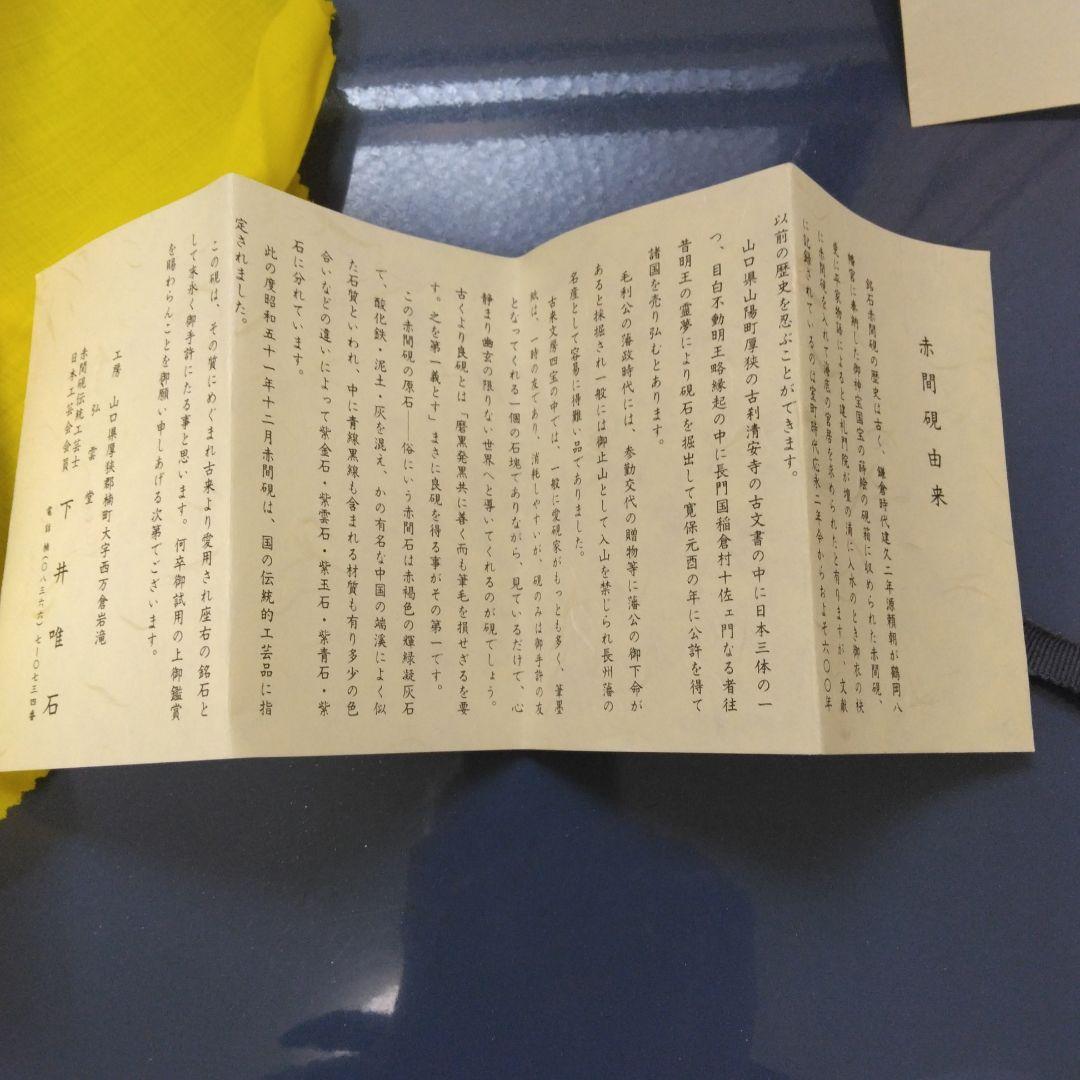 赤間硯由来
銘石赤間硯の歴史は古く、鎌倉時代建久二年源頼朝が鶴岡八
幡宮に奉納した御神宝国宝の蒔絵の硯箱に収められた赤間硯、
更に平家物語によると建礼門院が壇の浦に入水のとき御衣の袂
に赤間硯を入れて海底の宮居を求められたと有りますが、文献
に記録されているのは室町時代応永二年今からおよそ六〇〇年
以前の歴史を忍ぶことができます。
山口県山陽町厚狭の古刹清安寺の古文書の中に日本三体の一
つ、目白不動明王略縁起の中に長門国稲倉村十佐ェ門なる者往
昔明王の霊夢により硯石を掘出して寛保元酉の年に公許を得て
諸国を売り弘むとあります。
毛利公の藩政時代には、参勤交代の贈物等に藩公の御下命が
あると採掘され一般には御止山として入山を禁じられ長州藩の
名産として容易に得難い品でありました。
古来文房四宝の中では、一般に愛硯家がもっとも多く、筆墨
紙は、一時の友であり、消耗しやすいが、硯のみは御手許の友
となってくれる一個の石塊でありながら、見ているだけで、心
静まり幽玄の限りない世界へと導いてくれるのが硯でしょう。
古くより良硯とは「磨黒発黒共に善く而も筆毛を損せざるを要
す。之を第一義とす」まさに良硯を得る事がその第一です。
この赤間硯の原石――俗にいう赤間石は赤褐色の輝緑凝灰石
で、酸化鉄・泥土・灰を混え、かの有名な中国の端溪によく似
た石質といわれ、中に青線黒線も含まれる材質も有り多少の色
合いなどの違いによって紫金石・紫雲石・紫玉石・紫青石・紫
石に分れています。
此の度昭和五十一年十二月赤間硯は、国の伝統的工芸品に指
定されました。
この硯は、その質にめぐまれ古来より愛用され座右の銘石と
して末永く御手許にたる事と思います。何卒御試用の上御鑑賞
を賜わらんことを御願い申しあげる次第でございます。
工房 山口県厚狭郡楠町大字西万倉岩滝
弘雲堂
赤間硯伝統工芸士
日本工芸会会員 下井唯石
電話 楠(〇八三六六)七―〇七三四番